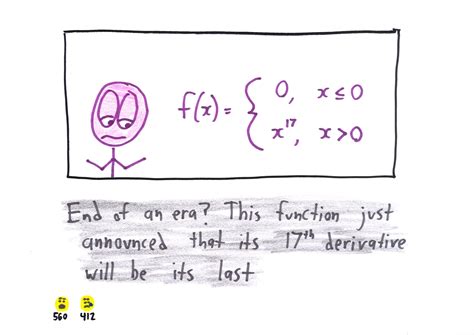 f(x) = { 0, x ≤ 0
x¹⁷, x > 0
End of an era? This function just
announced that its 17th derivative
will be its last
560 412